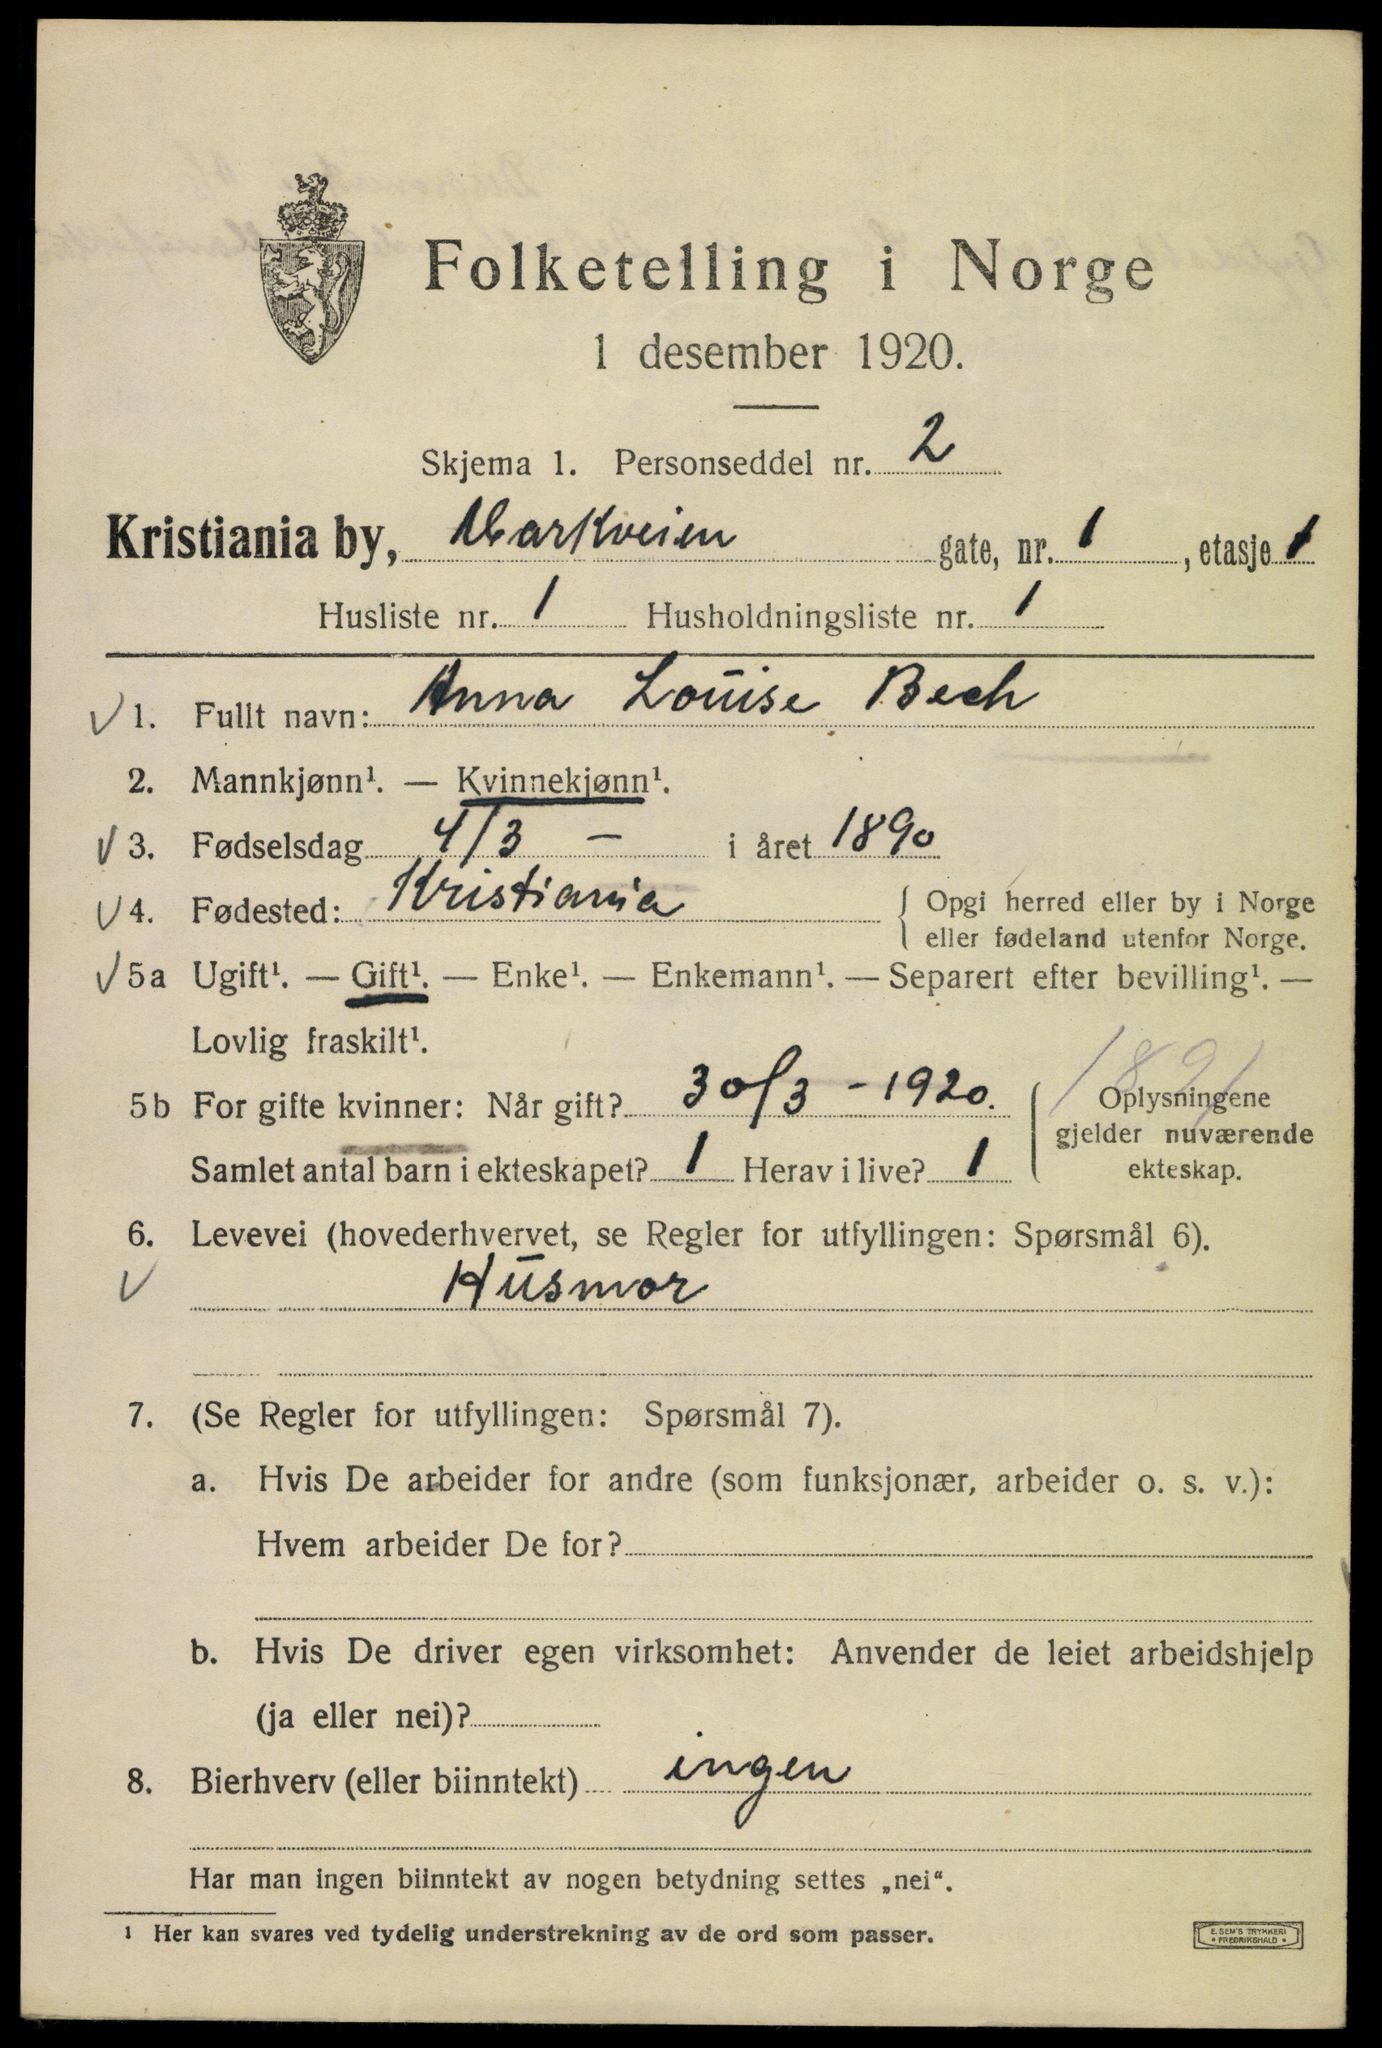 Folketelling i Norge
1 desember 1920.
Skjema 1. Personseddel nr. 2
Kristiania by, Markveien gate, nr. 1, etasje 1
Husliste nr. 1 Husholdningsliste nr. 1
1. Fullt navn: Anna Louise Bech
2. Mannkjønn¹. — Kvinnekjønn¹.
3. Fødselsdag 4/3 — i året 1890
4. Fødested: Kristiania { Opgi herred eller by i Norge
eller fødeland utenfor Norge.
5a Ugift¹. — Gift¹. — Enke¹. — Enkemann¹. — Separert efter bevilling¹. —
Lovlig fraskilt¹.
1891
5b For gifte kvinner: Når gift? 30/3 - 1920. { Oplysningene
gjelder nuværende
Samlet antal barn i ekteskapet? 1 Herav i live? 1 ekteskap.
6. Levevei (hovederhvervet, se Regler for utfyllingen: Spørsmål 6).
Husmor
7. (Se Regler for utfyllingen: Spørsmål 7).
a. Hvis De arbeider for andre (som funksjonær, arbeider o. s. v.):
Hvem arbeider De for?
b. Hvis De driver egen virksomhet: Anvender de leiet arbeidshjelp
(ja eller nei)?
8. Bierhverv (eller biinntekt) ingen
Har man ingen biinntekt av nogen betydning settes „nei“.
1 Her kan svares ved tydelig understrekning av de ord som passer.
E. SEM'S TRYKKERI
• FREDRIKSHALD •